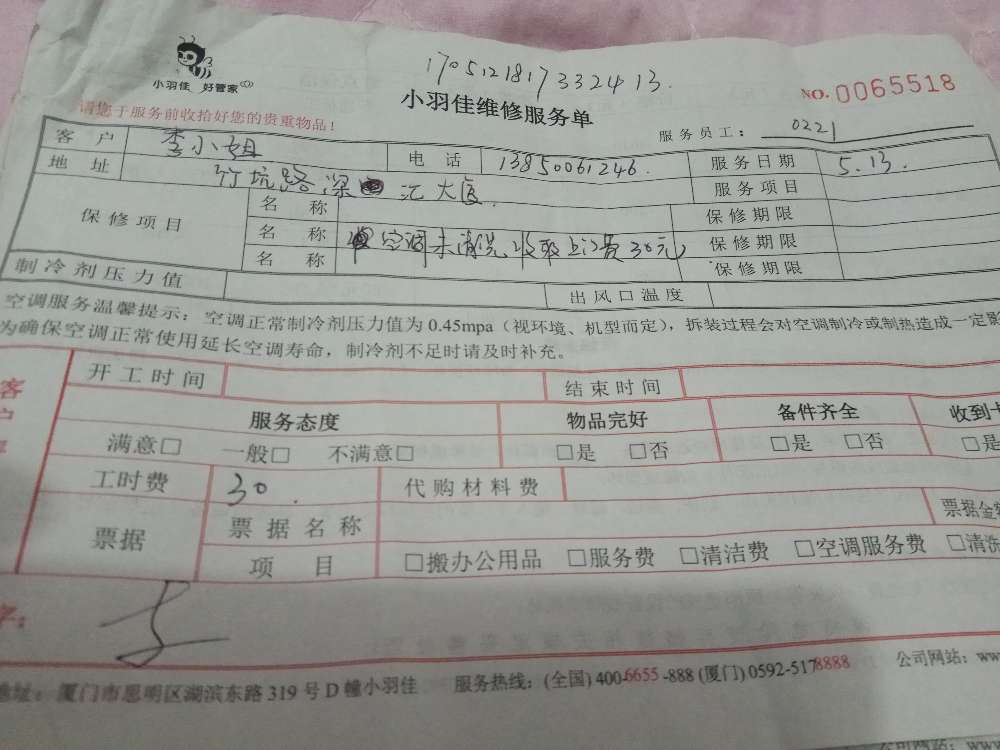 小羽佳 好管家
17051218173324 13.
小羽佳维修服务单
NO. 0065518
请您于服务前收拾好您的贵重物品！
服务员工： 0221
客户 李小姐 电话 13850061246. 服务日期 5.13.
地址 竹坑路深 汇大厦. 服务项目
保修项目 名称 保修期限
名称 空调未清洗收取上门费30元 保修期限
名称 保修期限
制冷剂压力值 出风口温度
空调服务温馨提示：空调正常制冷剂压力值为 0.45mpa（视环境、机型而定），拆装过程会对空调制冷或制热造成一定影
为确保空调正常使用延长空调寿命，制冷剂不足时请及时补充。
开工时间 结束时间
服务态度 物品完好 备件齐全 收到卡
满意□ 一般□ 不满意□ □是 □否 □是 □否 □是
工时费 30. 代购材料费
票据 票据名称 票据金额
项目 □搬办公用品 □服务费 □清洁费 □空调服务费 □清洗
字：
地址：厦门市思明区湖滨东路 319 号 D 幢小羽佳 服务热线：(全国) 400-6655-888 (厦门) 0592-5178888 公司网站：www